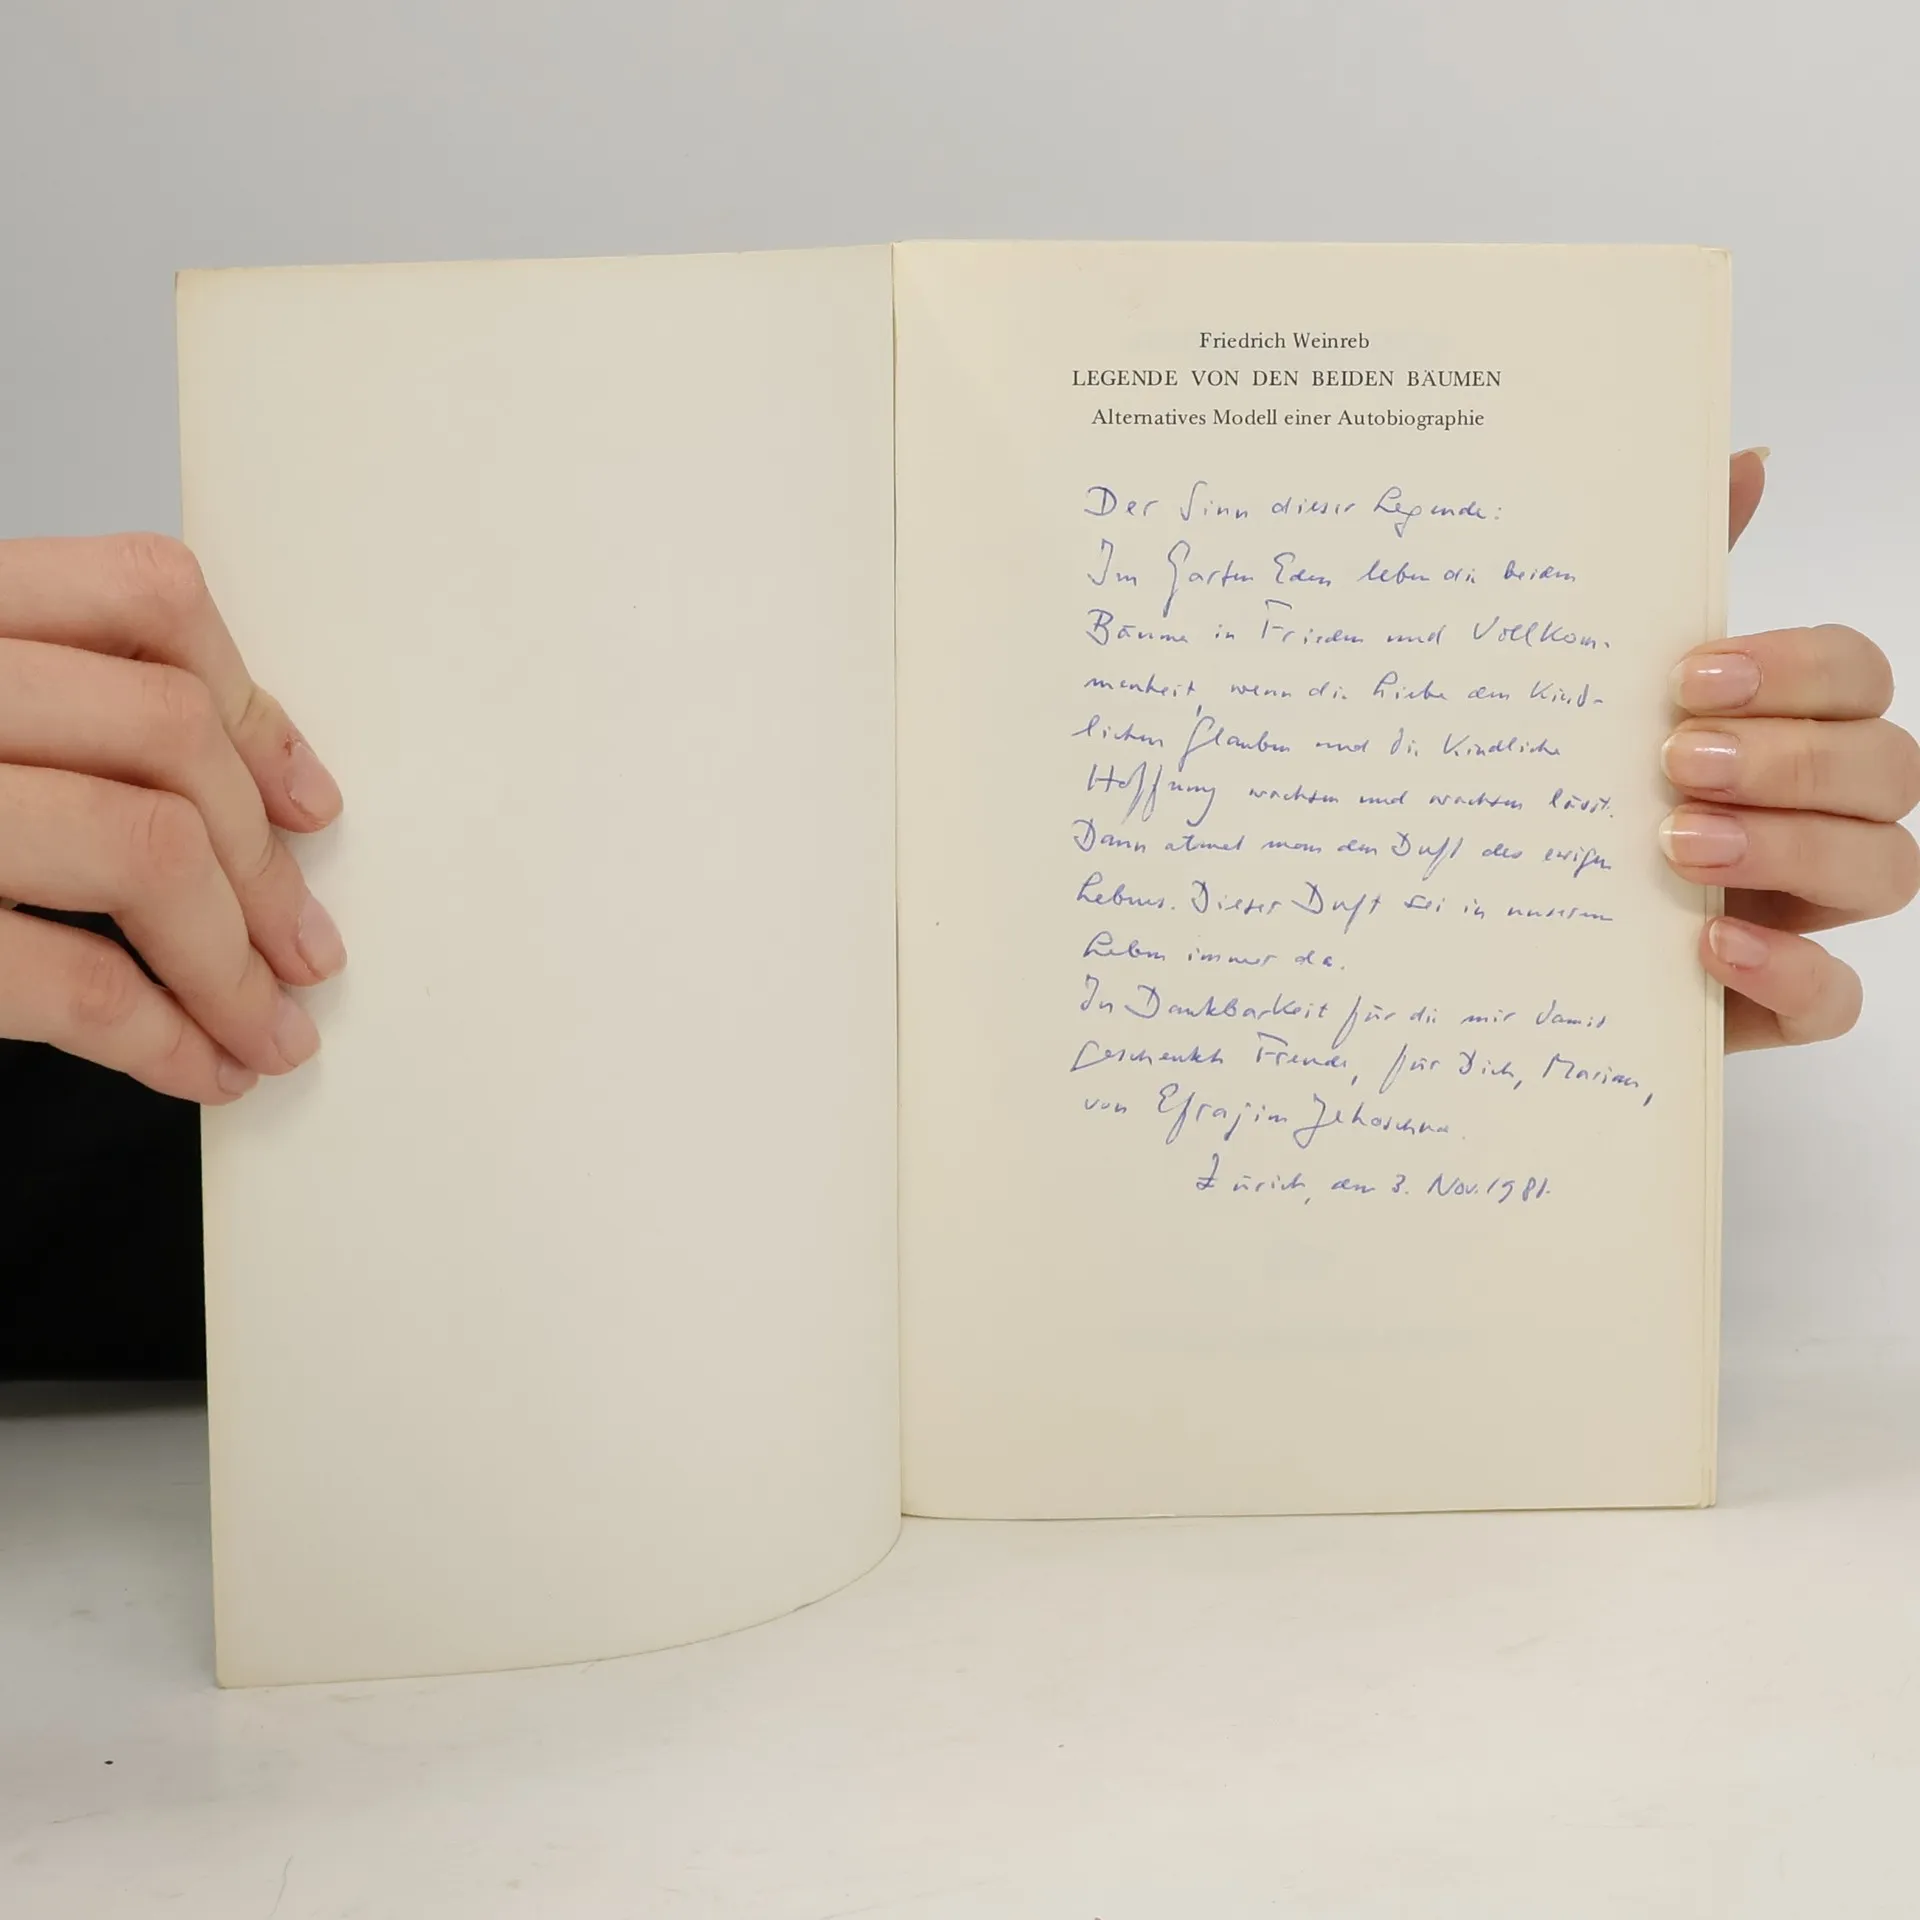 Friedrich Weinreb
LEGENDE VON DEN BEIDEN BÄUMEN
Alternatives Modell einer Autobiographie
Der Sinn dieser Legende:
Im Garten Eden leben die beiden
Bäume in Frieden und Vollkom-
menheit, wenn die Liebe den kind-
lichen Glauben und die kindliche
Hoffnung wachsen und wachsen lässt.
Dann atmet man den Duft des ewigen
Lebens. Dieser Duft sei in unserem
Leben immer da.
In Dankbarkeit für die mir damit
geschenkte Freude, für Dich, Marian,
von Efrajim Jehoschua.
Zürich, den 3. Nov. 1981.